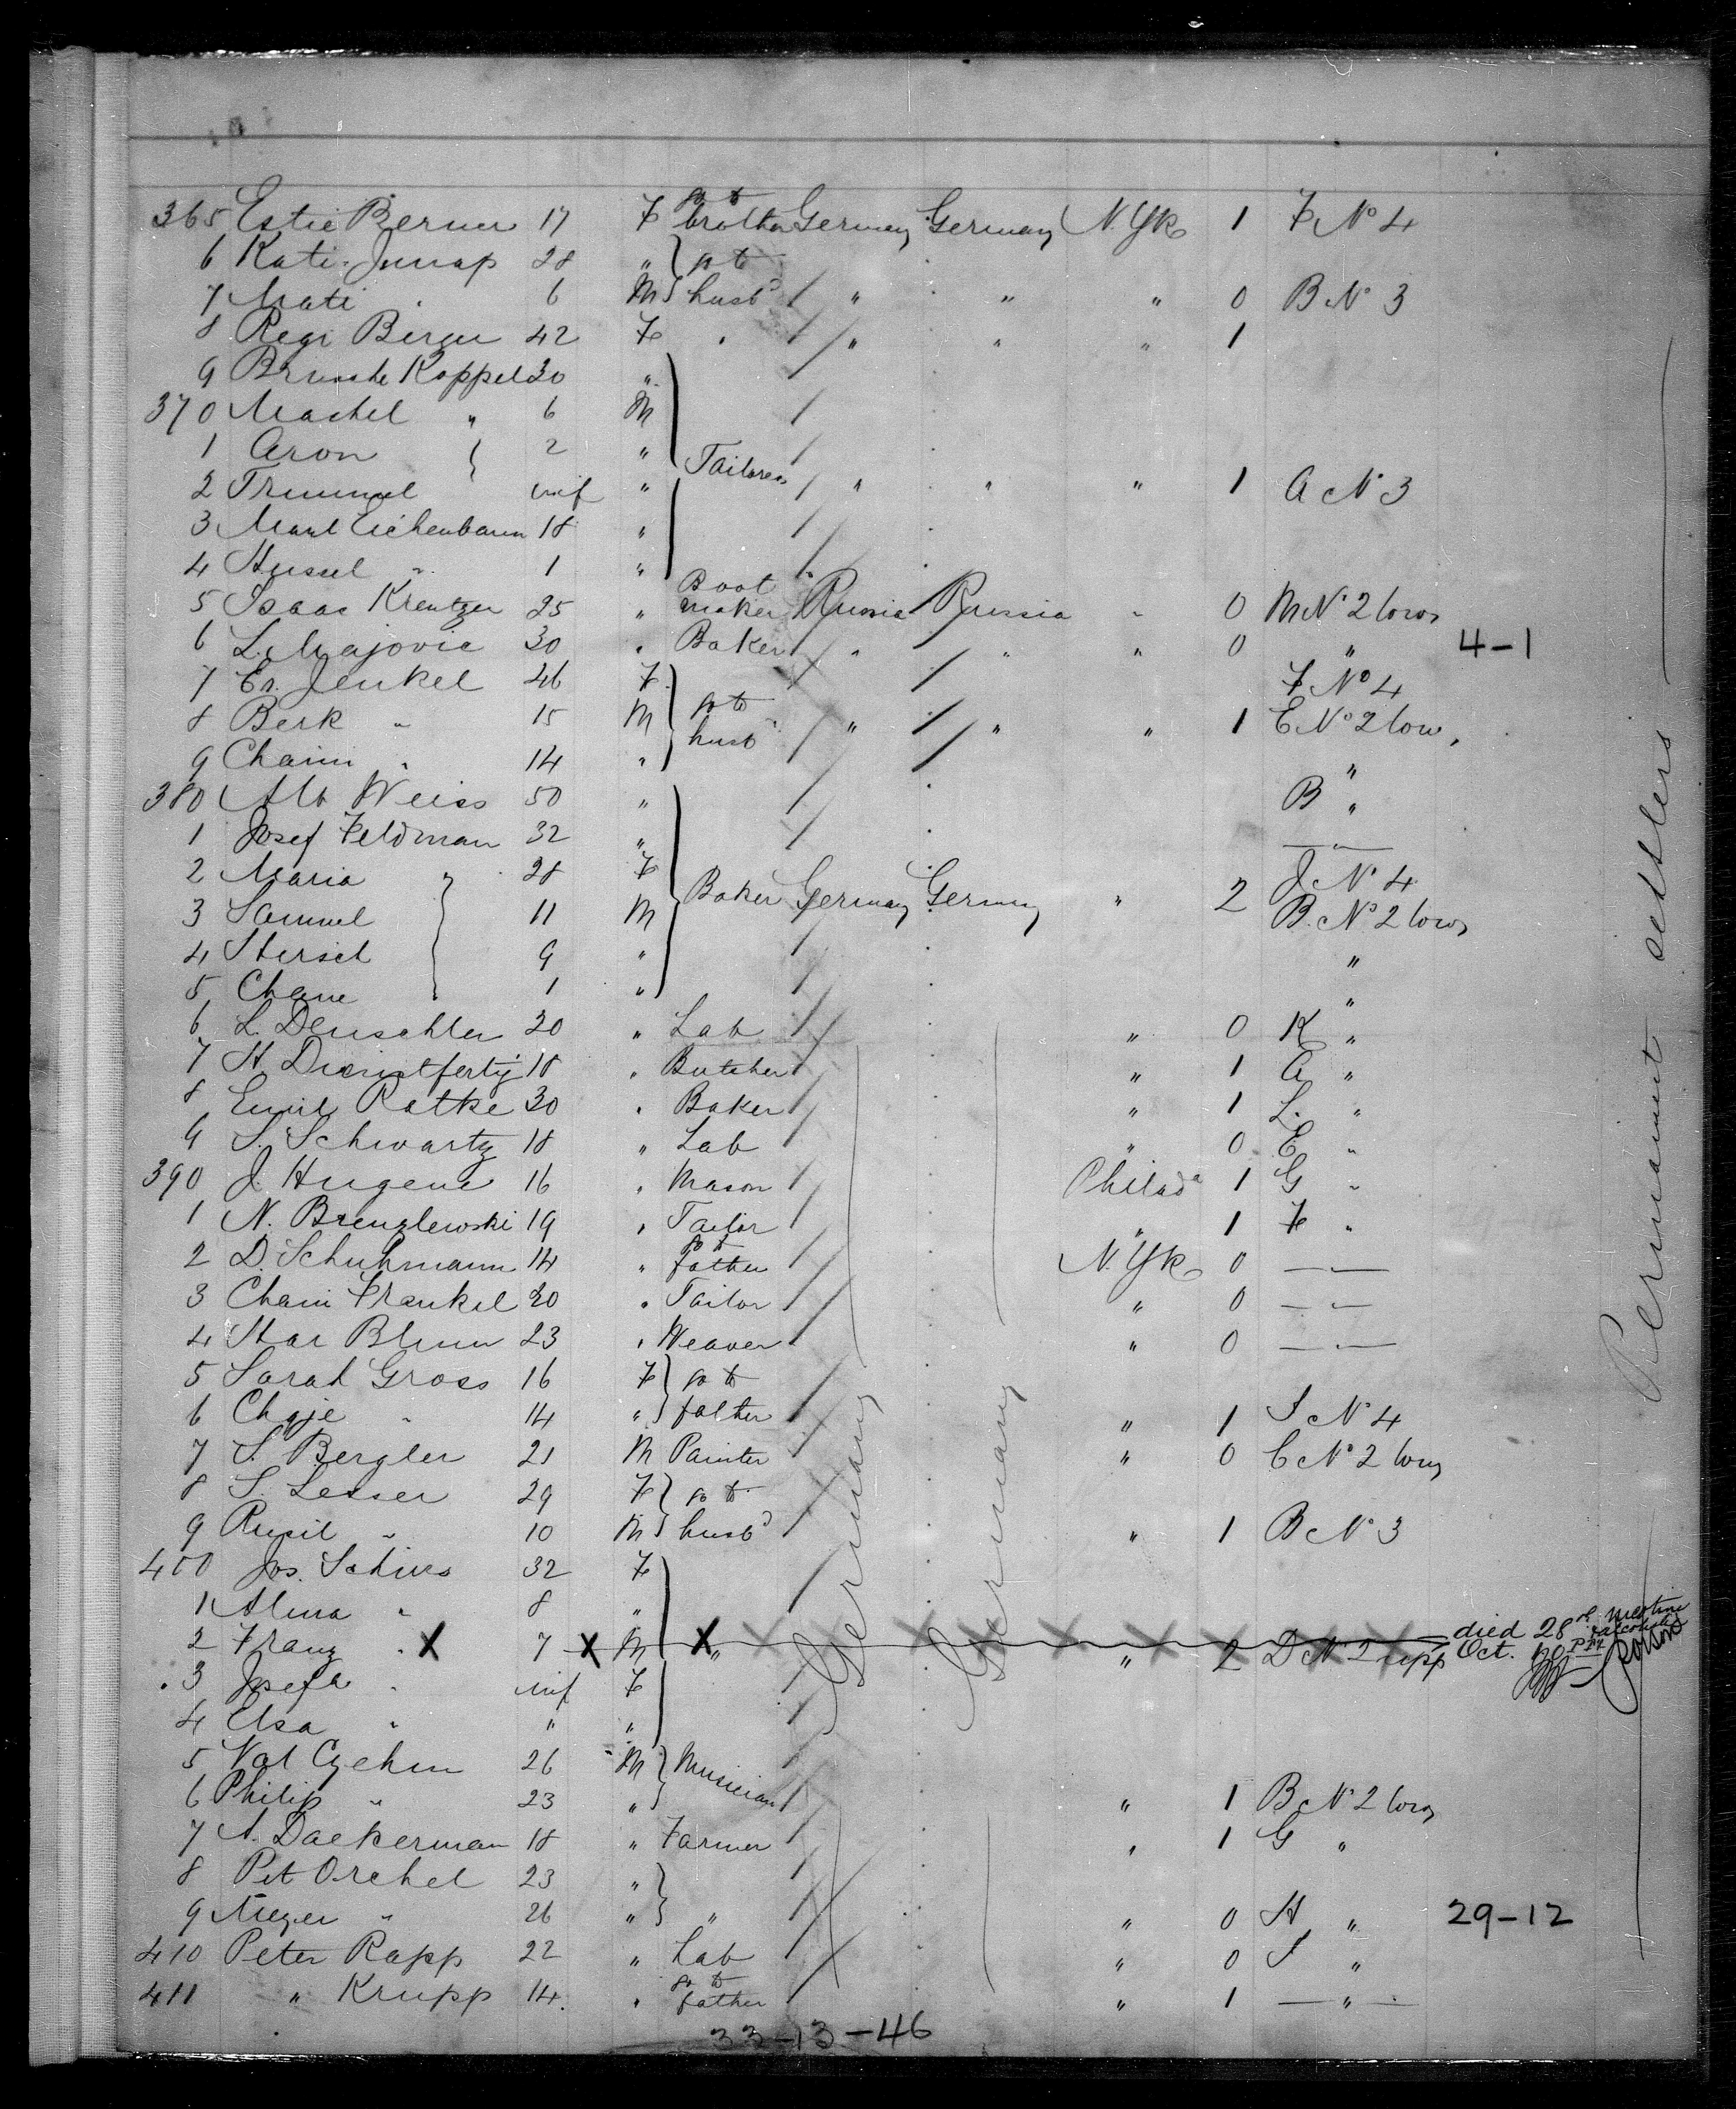 365 Estie Berner 17 F go to brother Germany Germany N. Yk 1 F No 4
6 Kati Junap 28 " go to
7 Mati " 6 M husbd " " " 0 B No 3
8 Regi Berger 42 F " " " " 1
9 Koppel 30 "
370 Mashel " 6 M
1 Aron 2 "
2 inf " Tailoress " " " 1 A No 3
3 Eichenbaum 18 "
4 Hussel " 1 "
5 Isaac Kreutzer 25 " Boot maker Russia Russia " 0 M No 2 low
6 L. Majovic 30 " Baker " " " 0 " 4-1
7 Er. Jenkel 46 F F No 4
8 Berk " 15 M go to husbd " " " 1 E No 2 low
9 Chaim " 14 " "
380 Alb Weiss 50 " B "
1 Josef Feldman 32 " — " —
2 Maria 28 F J No 4
3 Samuel 11 M Baker Germany Germany " 2 B. No 2 low
4 Hersch 9 " "
5 Chane 1 " "
6 L. Deuschler 30 " Lab " 0 K "
7 H. Dienstfertig 18 " Butcher " 1 A "
8 Emil Ratke 30 " Baker " 1 L. "
9 S. Schwartz 18 " Lab " 0 E "
390 J. Hugene 16 " Mason Philada 1 G "
1 N. Brenzlewski 19 " Tailor " 1 F "
2 D. Schuhmann 14 " go to father N. Yk 0 — " —
3 Chaim Frankel 20 " Tailor " 0 — " —
4 Blum 23 " Weaver " 0 — " —
5 Sarah Gross 16 F go to
6 Chaje " 14 " father " 1 I No 4
7 S. Bergler 21 M Painter " 0 C No 2 low
8 S. Lesser 29 F go to
9 Rusil " 10 M husbd " 1 B No 3
400 Jos. Schirs 32 F
1 Alma " 8 "
2 Franz " X 7 X M X " " 2 D No 2 upp died 28 Oct. Poison
3 Josefa " inf F
4 Elsa " " "
5 Czehm 26 M Musician
6 Philip " 23 " " 1 B No 2 low
7 A. Dackerman 18 " Farmer " 1 G "
8 Pet Orchel 23 "
9 Meyer " 26 " " " 0 H " 29-12
410 Peter Rapp 22 " Lab " 0 I "
411 " Krupp 14. " go to father " 1 — " —
33-13-46
Germany
Germany
Permanent settlers